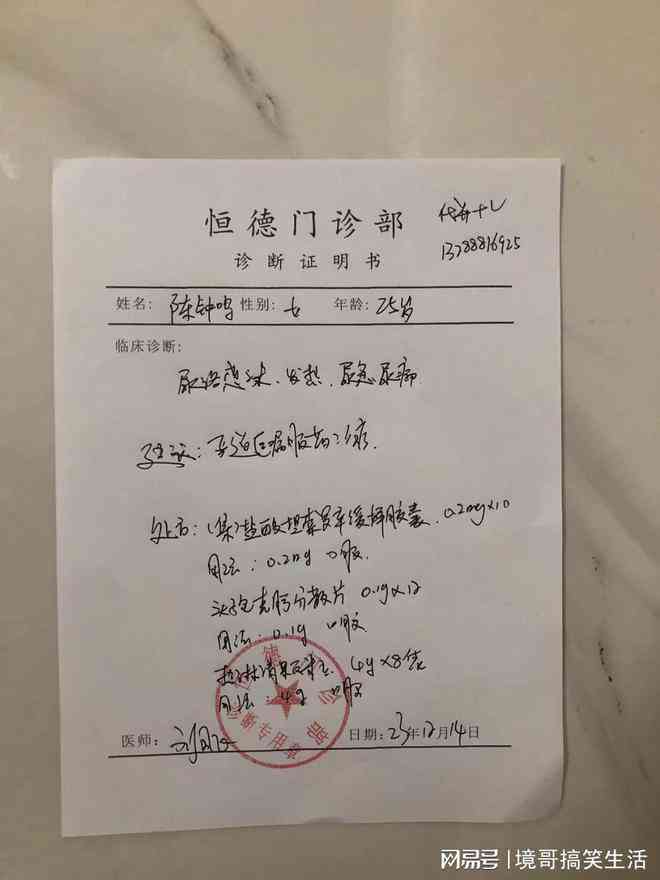 恒德门诊部
13788816925
诊断证明书
姓名: 陈钟鸣 性别: 女 年龄: 25岁
临床诊断:
尿路感染、发热、尿急尿痛
建议: 服药治疗.
处方: (集)盐酸坦索罗辛缓释胶囊 0.2mg×10
用法: 0.2mg 口服
头孢克肟分散片 0.1g×12
用法: 0.1g 口服
4g×8袋
用法: 4g 口服
断专用章
医师: 刘 日期: 23年12月14日
网易号 | 境哥搞笑生活